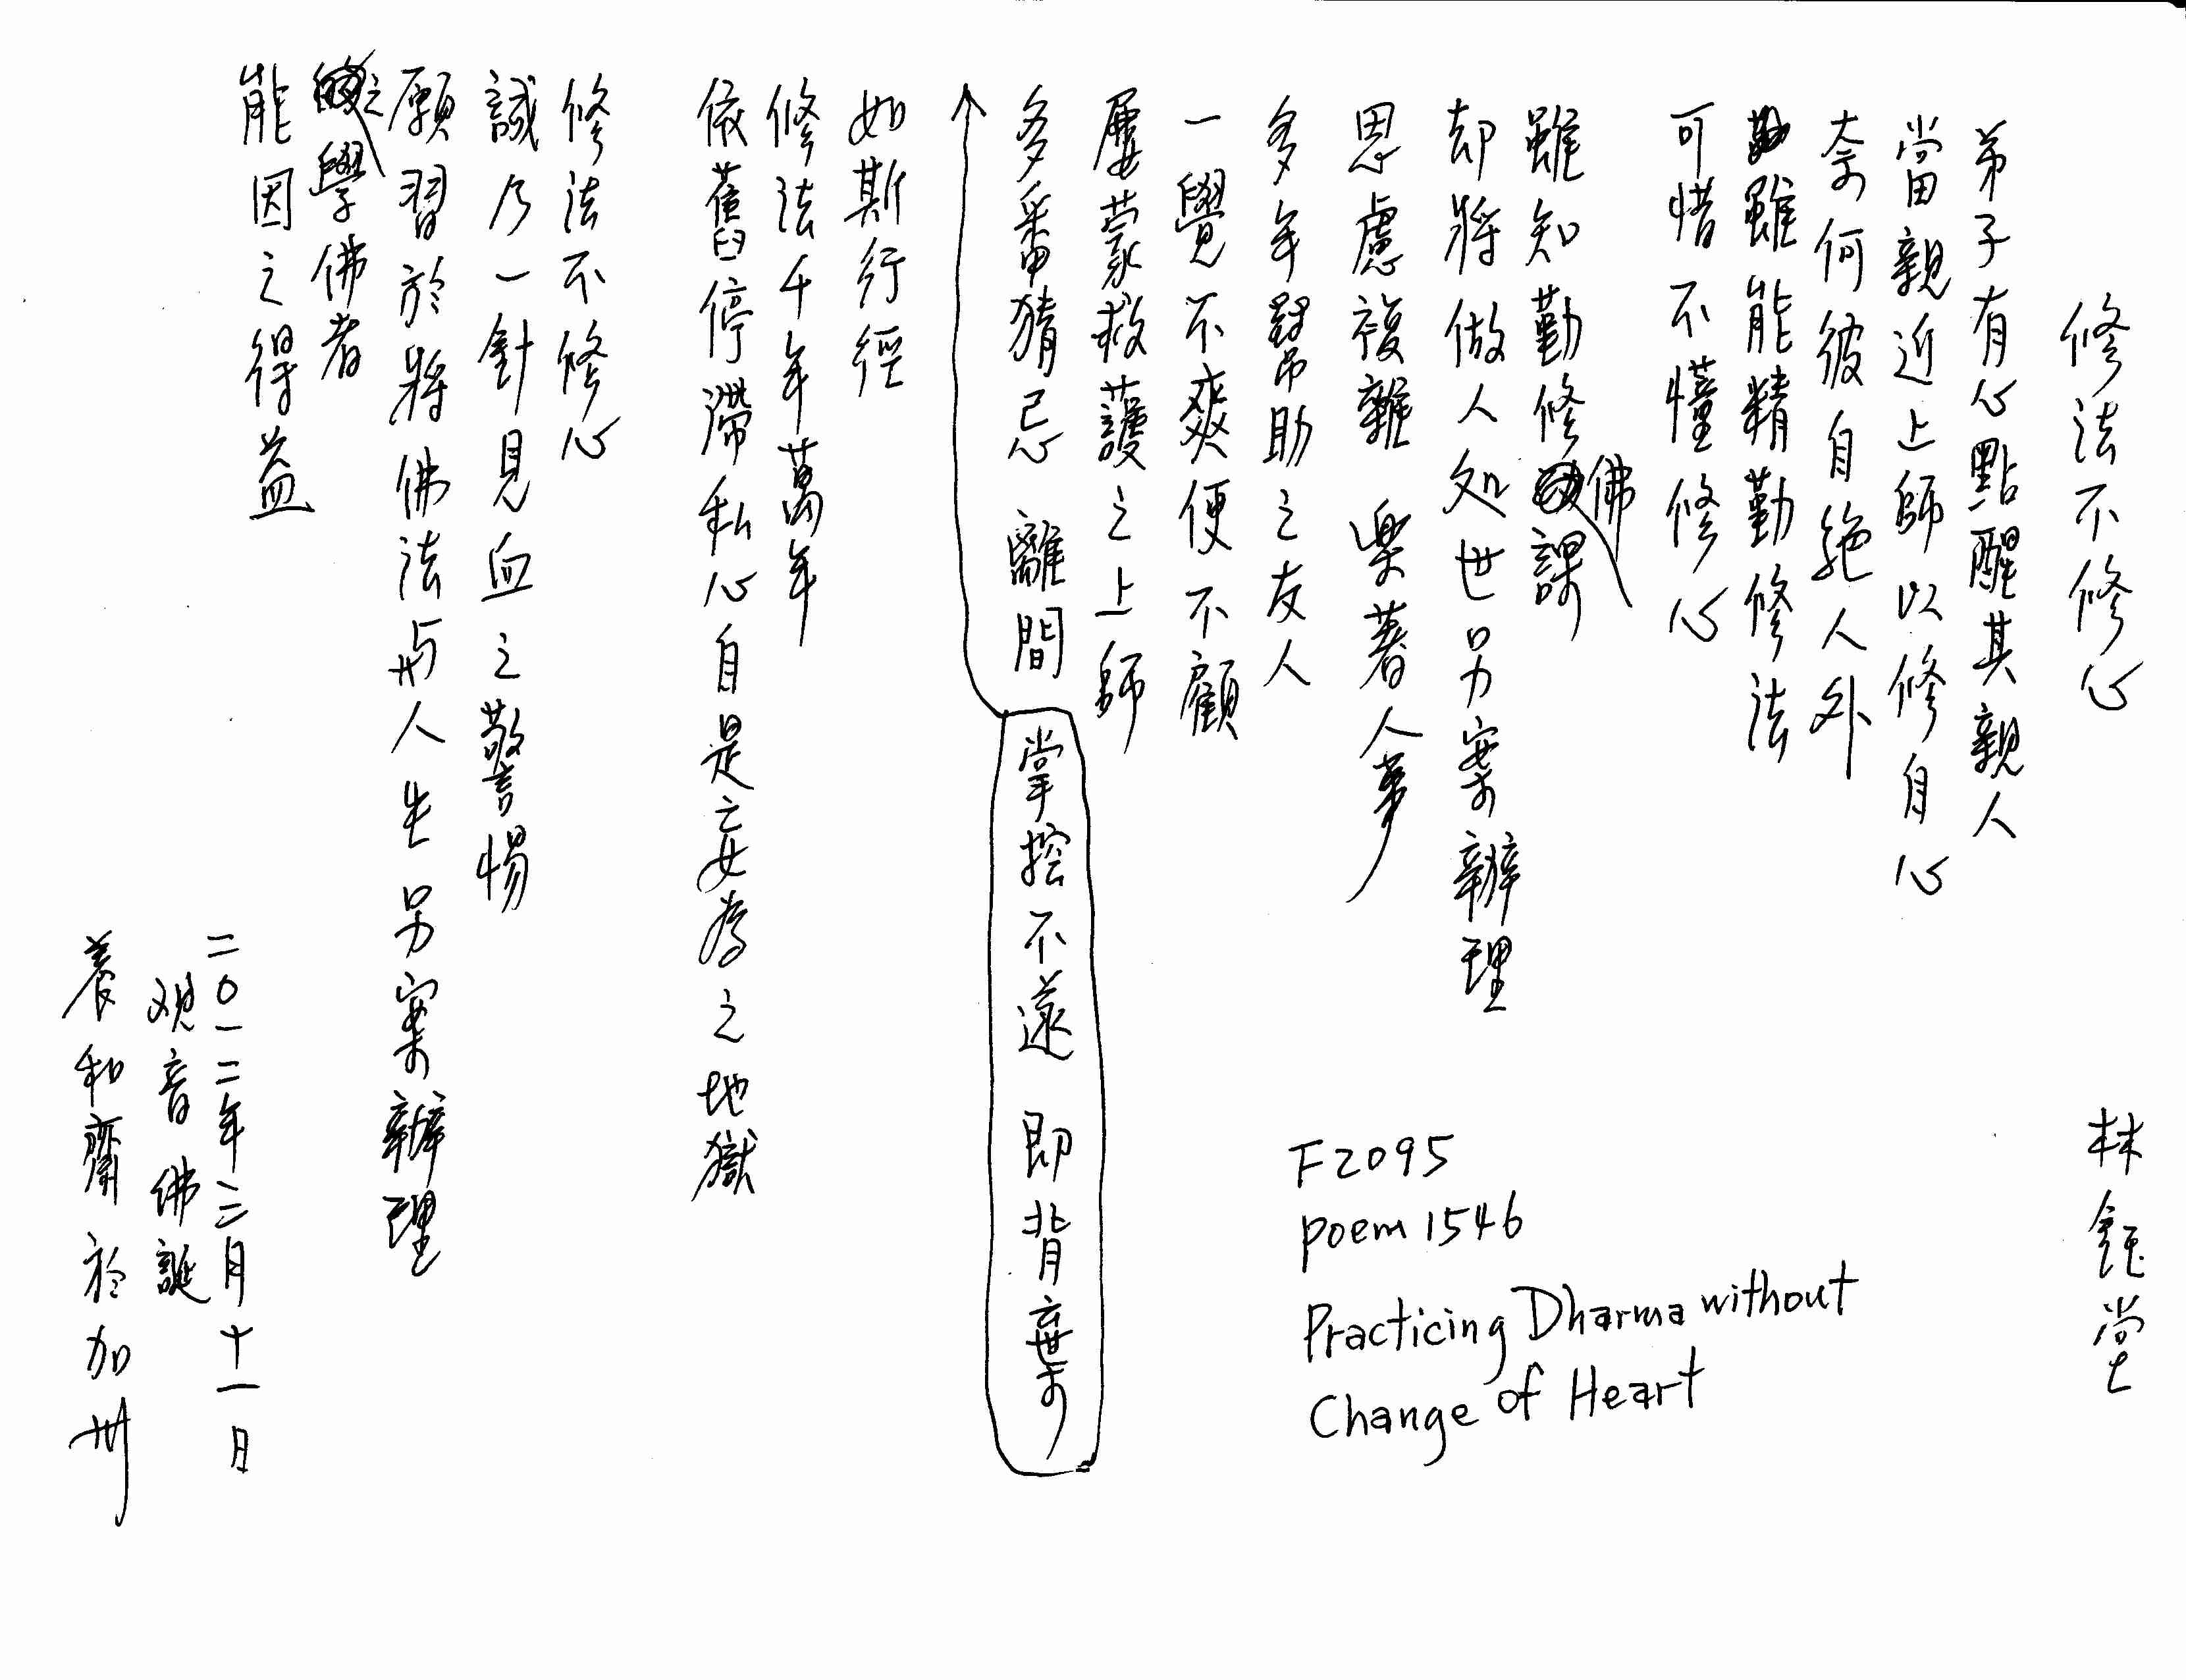 修法不修心
林鈺堂
弟子有心點醒其親人
當親近上師以修自心
奈何彼自絕人外
雖能精勤修法
可惜不懂修心
雖知勤修佛課
却將做人处世另案辦理
思慮複雜 樂著人事
多年幫助之友人
一覺不爽便不顧
屢蒙救護之上師
多番猜忌 離間
掌控不遂 即背棄
如斯行徑
修法千年萬年
依舊停滯私心自是妄為之地獄
修法不修心
誠乃一針見血之警惕
願習於將佛法与人生另案辦理
之學佛者
能因之得益
二〇一二年三月十一日
观音佛誕
養和齋 於加州
F2095
poem 1546
Practicing Dharma without
Change of Heart